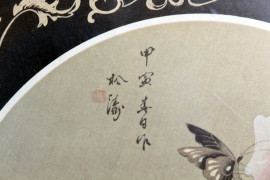 甲寅春日作
松濤